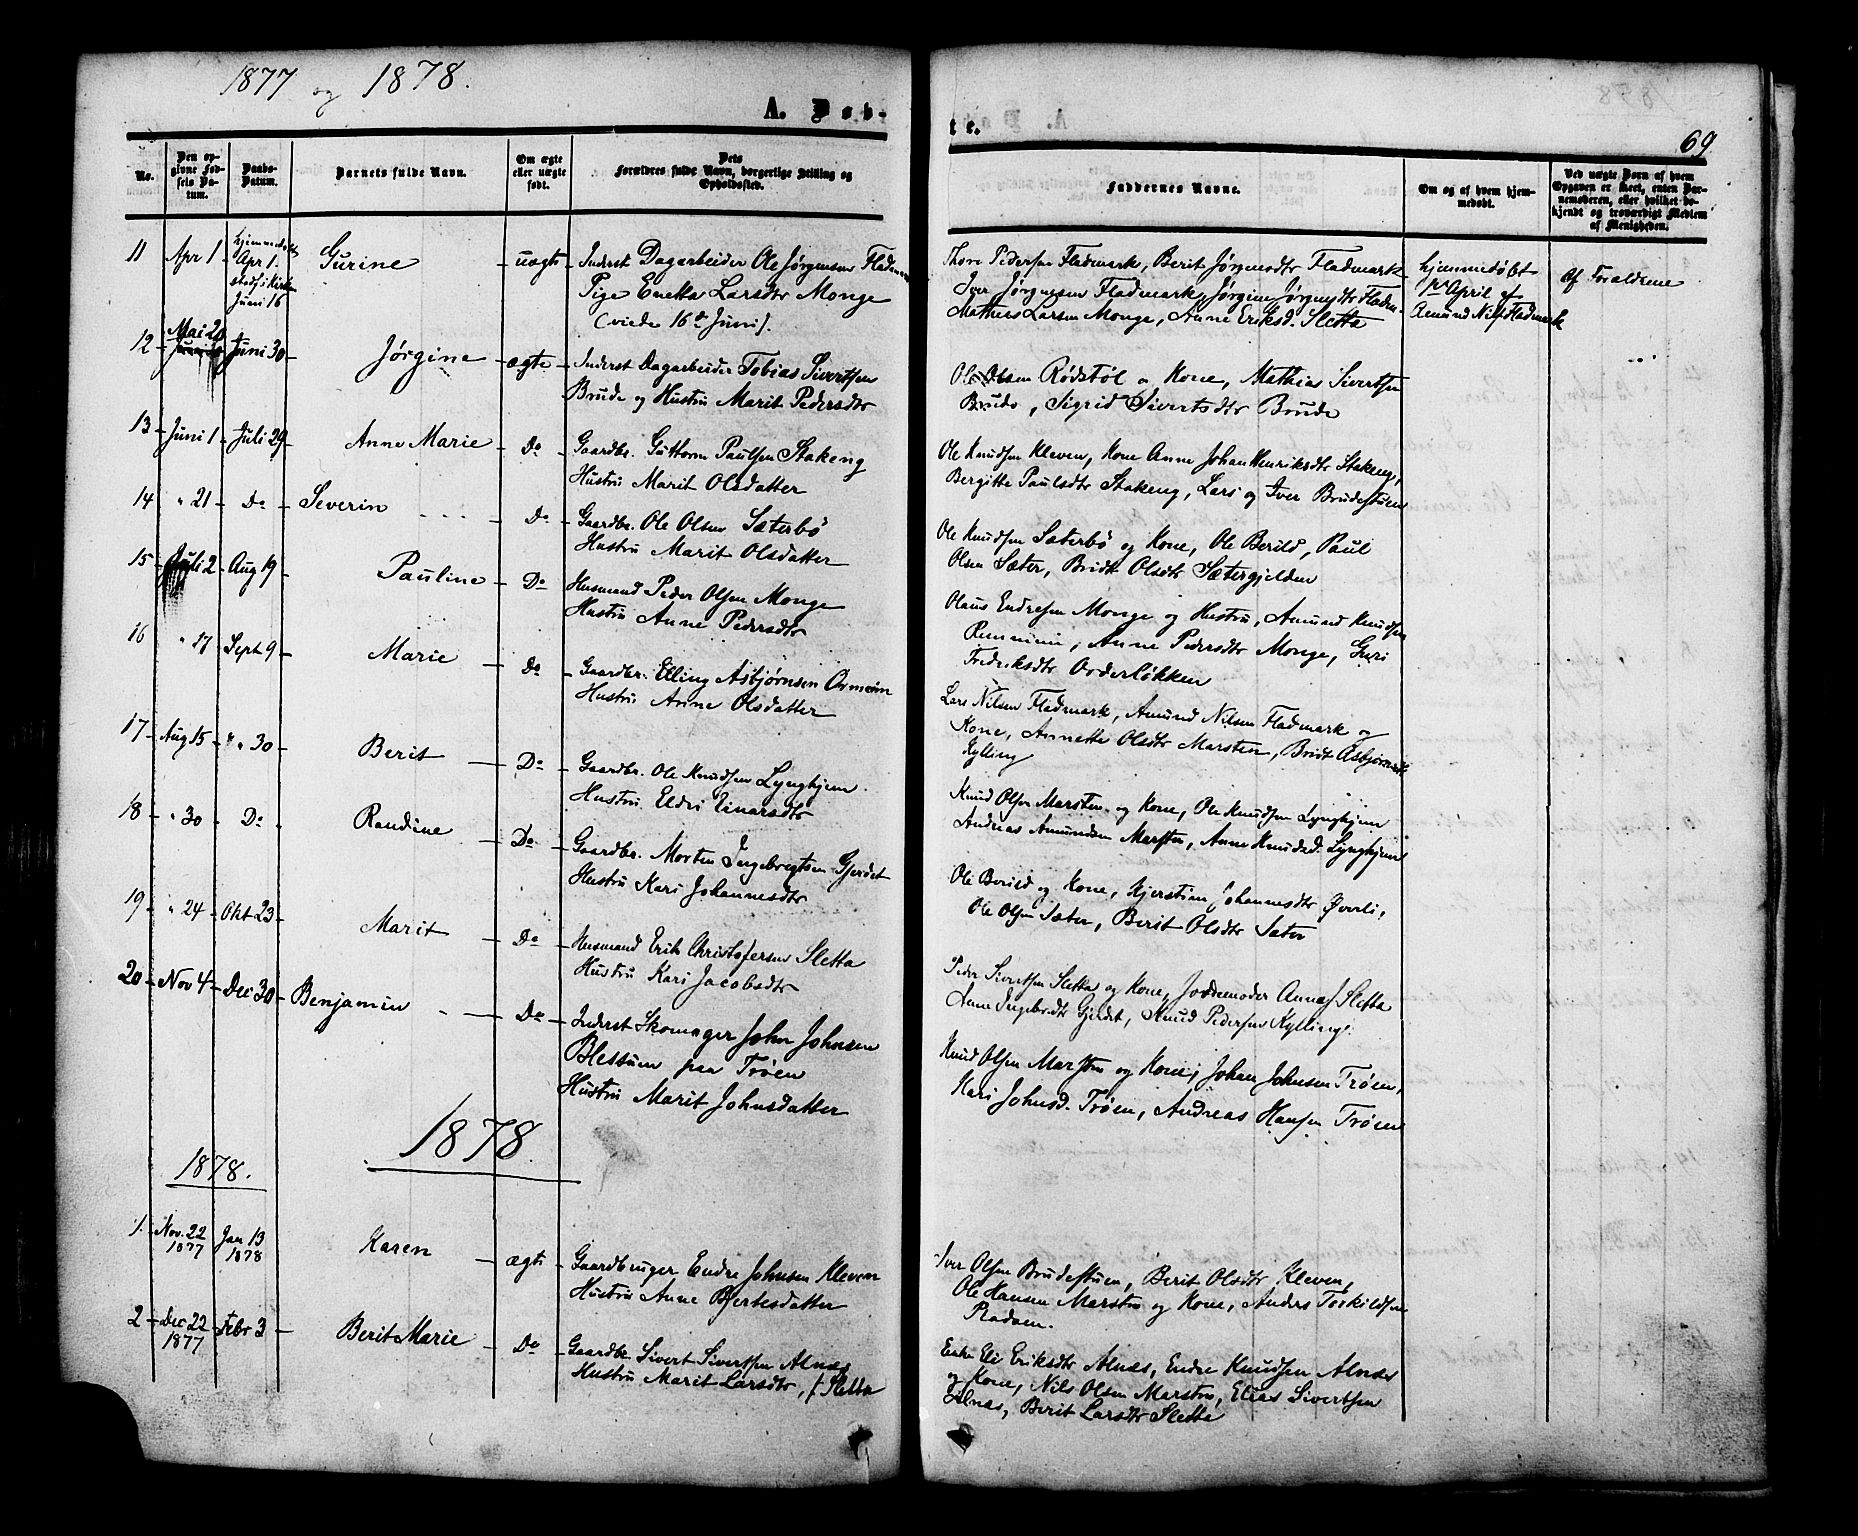 1877 og 1878.
A. Døb-
te.
69
No.
Den op-
givne Fød-
sels Da-
tum.
Daabs-
Datum.
Barnets fulde Navn.
Om ægte
eller uægte
født.
Dets
Forældres fulde Navn, borgerlige Stilling og
Opholdssted.
Faddernes Navne.
Om og af hvem hjem-
medøbt.
Ved uægte Børn af hvem
Opgaven er skeet, enten Bar-
nemoderen, eller hvilket be-
kjendt og troværdigt Medlem
af Menigheden.
11 Apr 1 hjemmedøbt Apr 1. stadf. i Kirken Juni 16 Gurine uægte
Inderst Dagarbeider Ole Jørgensen Fladmark
Pige Enetta Larsdtr Monge
(viede 16de Juni).
Thore Pedersen Fladmark, Berit Jørgensdtr Fladmark
Iver Jørgensen Fladmark, Jørgine Jørgensdtr Fladm.
Mathias Larsen Monge, Anne Eriksd. Sletta
hjemmedøbt
1ste April af
Amund Nils. Fladmark
Af Forældrene
12 Mai 20 Juni 30 Jørgine ægte
Inderst Dagarbeider Tobias Sivertsen
Brude og Hustru Marit Pedersdtr
Ole Olsen Rødstøl og Kone, Mathias Sivertsen
Brude, Sigrid Sivertsdtr Brude
13 Juni 1 Juli 29 Anne Marie Do
Gaardbr. Guttorm Paulsen Stakeng
Hustru Marit Olsdatter
Ole Knudsen Kleven, Kone Anne Johan Henriksdtr Stakeng,
Bergitte Paulsdtr Stakeng, Lars og Iver Brudestuen
14 " 21 Do Severin Do
Gaardbr. Ole Olsen Sæterbø
Hustru Marit Olsdatter
Ole Knudsen Sæterbø og Kone, Ole Berild, Paul
Olsen Sæter, Bridt Olsdtr Sætergjelden
15 Juli 2 Aug 19 Pauline Do
Husmand Peder Olsen Monge
Hustru Anne Pedersdtr
Olaus Endresen Monge og Hustru, Amund Knudsen
Remmem, Anne Pedersdtr Monge, Guri
Fredriksdtr Orderløkken
16 " 17 Sept 9 Marie Do
Gaardbr. Elling Asbjørnsen Ormeim
Hustru Anne Olsdatter
Lars Nilsen Fladmark, Amund Nilsen Fladmark og
Kone, Annette Olsdtr Marsten, Bridt Asbjørnsdtr
Kylling
17 Aug 15 " " 30 Berit Do
Gaardbr. Ole Knudsen Lyngheim
Hustru. Eldri Einarsdtr
Knud Olsen Marsten og Kone, Ole Knudsen Lyngheim
Andreas Amundsen Marsten, Anne Knudsd. Lyngheim
18 " 30 Do Randine Do
Gaardbr. Morten Ingebregtsen Gjerdet
Hustru Kari Johannesdtr
Ole Berild og Kone, Kjerstine Johannesdtr Øverli,
Ole Olsen Sæter, Berit Olsdtr Sæter
19 " 24 Okt 23 Marit Do
Husmand Erik Christofersen Sletta
Hustru Kari Jacobsdtr
Peder Sivertsen Sletta og Kone, Jordemoder Anna J. Sletta
Anne Ingebrdtr Gjerdet, Knud Pedersen Kylling.
20 Nov 4 Dec 30 Benjamin Do
Inderst Skomager John Johnsen
Blessum paa Trøen
Hustru Marit Johnsdatter
Knud Olsen Marsten og Kone, Johan Johnsen Trøen,
Kari Johnsd. Trøen, Andreas Hansen Trøen
1878.
1878.
1. Nov. 22 1877 Jan 13 1878 Karen ægte
Gaardbruger Endre Johnsen Kleven
Hustru Anne Bjertesdatter
Iver Olsen Brudestuen, Berit Olsdtr Kleven,
Ole Hansen Marsten og Kone, Anders Torkildsen
Rødven.
2 Dec 22 1877 Febr 3 Berit Marie Do
Gaardbr Sivert Sivertsen Alnæs
Hustru Marit Larsdtr, f. Sletta
Enke Eli Eriksdtr Alnæs, Endre Knudsen Alnæs
og Kone, Nils Olsen Marsten, Elias Sivertsen
Alnæs, Berit Larsdtr Sletta